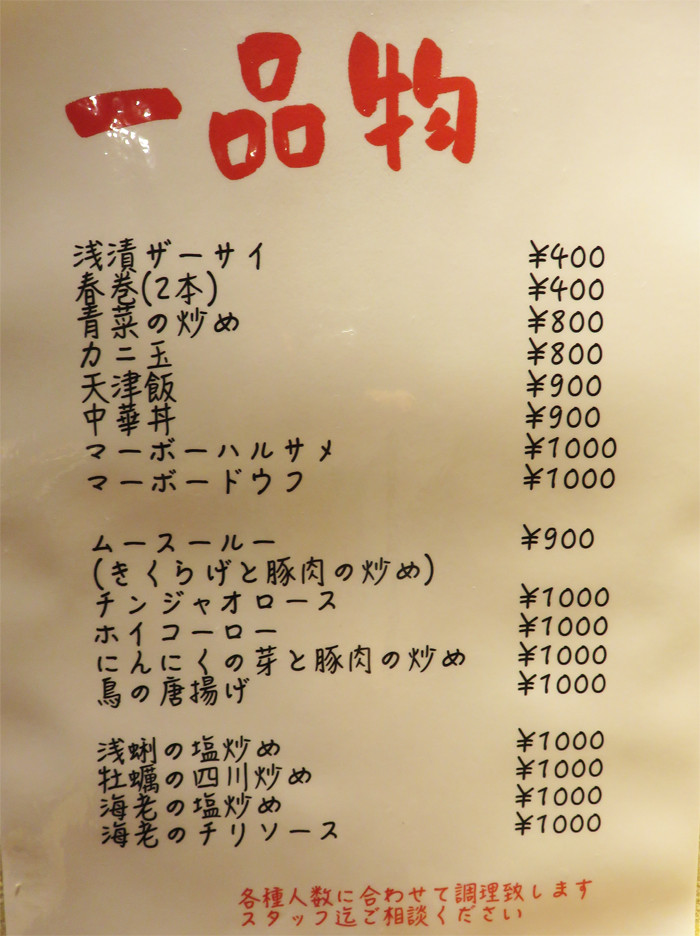 一品物
浅漬ザーサイ ¥400
春巻(2本) ¥400
青菜の炒め ¥800
カニ玉 ¥800
天津飯 ¥900
中華丼 ¥900
マーボーハルサメ ¥1000
マーボードウフ ¥1000
ムースールー ¥900
(きくらげと豚肉の炒め)
チンジャオロース ¥1000
ホイコーロー ¥1000
にんにくの芽と豚肉の炒め ¥1000
鳥の唐揚げ ¥1000
浅蜊の塩炒め ¥1000
牡蠣の四川炒め ¥1000
海老の塩炒め ¥1000
海老のチリソース ¥1000
各種人数に合わせて調理致します
スタッフ迄ご相談ください